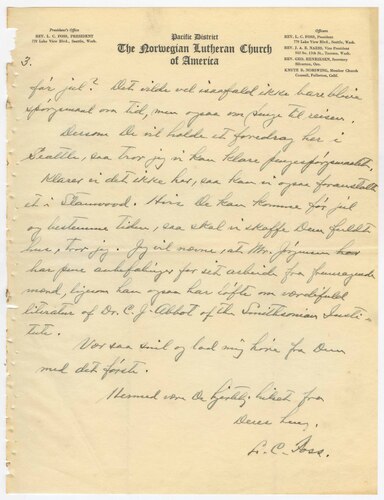 President's Office
REV. L. C. FOSS, PRESIDENT
Seattle, Wash.
Pacific District
The Norwegian Lutheran Church
of America
Officers
REV. L. C. FOSS, President
Seattle, Wash.
Vice President
Tacoma, Wash.
REV. GEO. HENRIKSEN, Secretary
Silvana, Wn.
Member Church
Council
3.
før jul? Det vilde vel isaafald ikke bare blive
spørgsmaal om tid, men ogsaa om penge til reisen.
Dersom De vil holde et foredrag her i
Seattle, saa tror jeg vi kan klare pengespørgsmaalet.
Klarer vi det ikke her, saa kan vi ogsaa foranstalte
et i Stanwood. Hvis De kan komme før jul
og bestemme tiden, saa skal vi skaffe Dem fuldt
hus, tror jeg. Jeg vil nævne, at Mr.
har pene anbefalinger for sit arbeide fra fremragende
mænd, ligesom han ogsaa har løfte om værdifuld
literatur af Dr. C. J. Abbot of the Smithsonian Insti-
tute.
Vær saa snil og lad mig høre fra Dem
med det første.
Hermed være De hjertlig hilset fra
Deres
L. C. Foss.